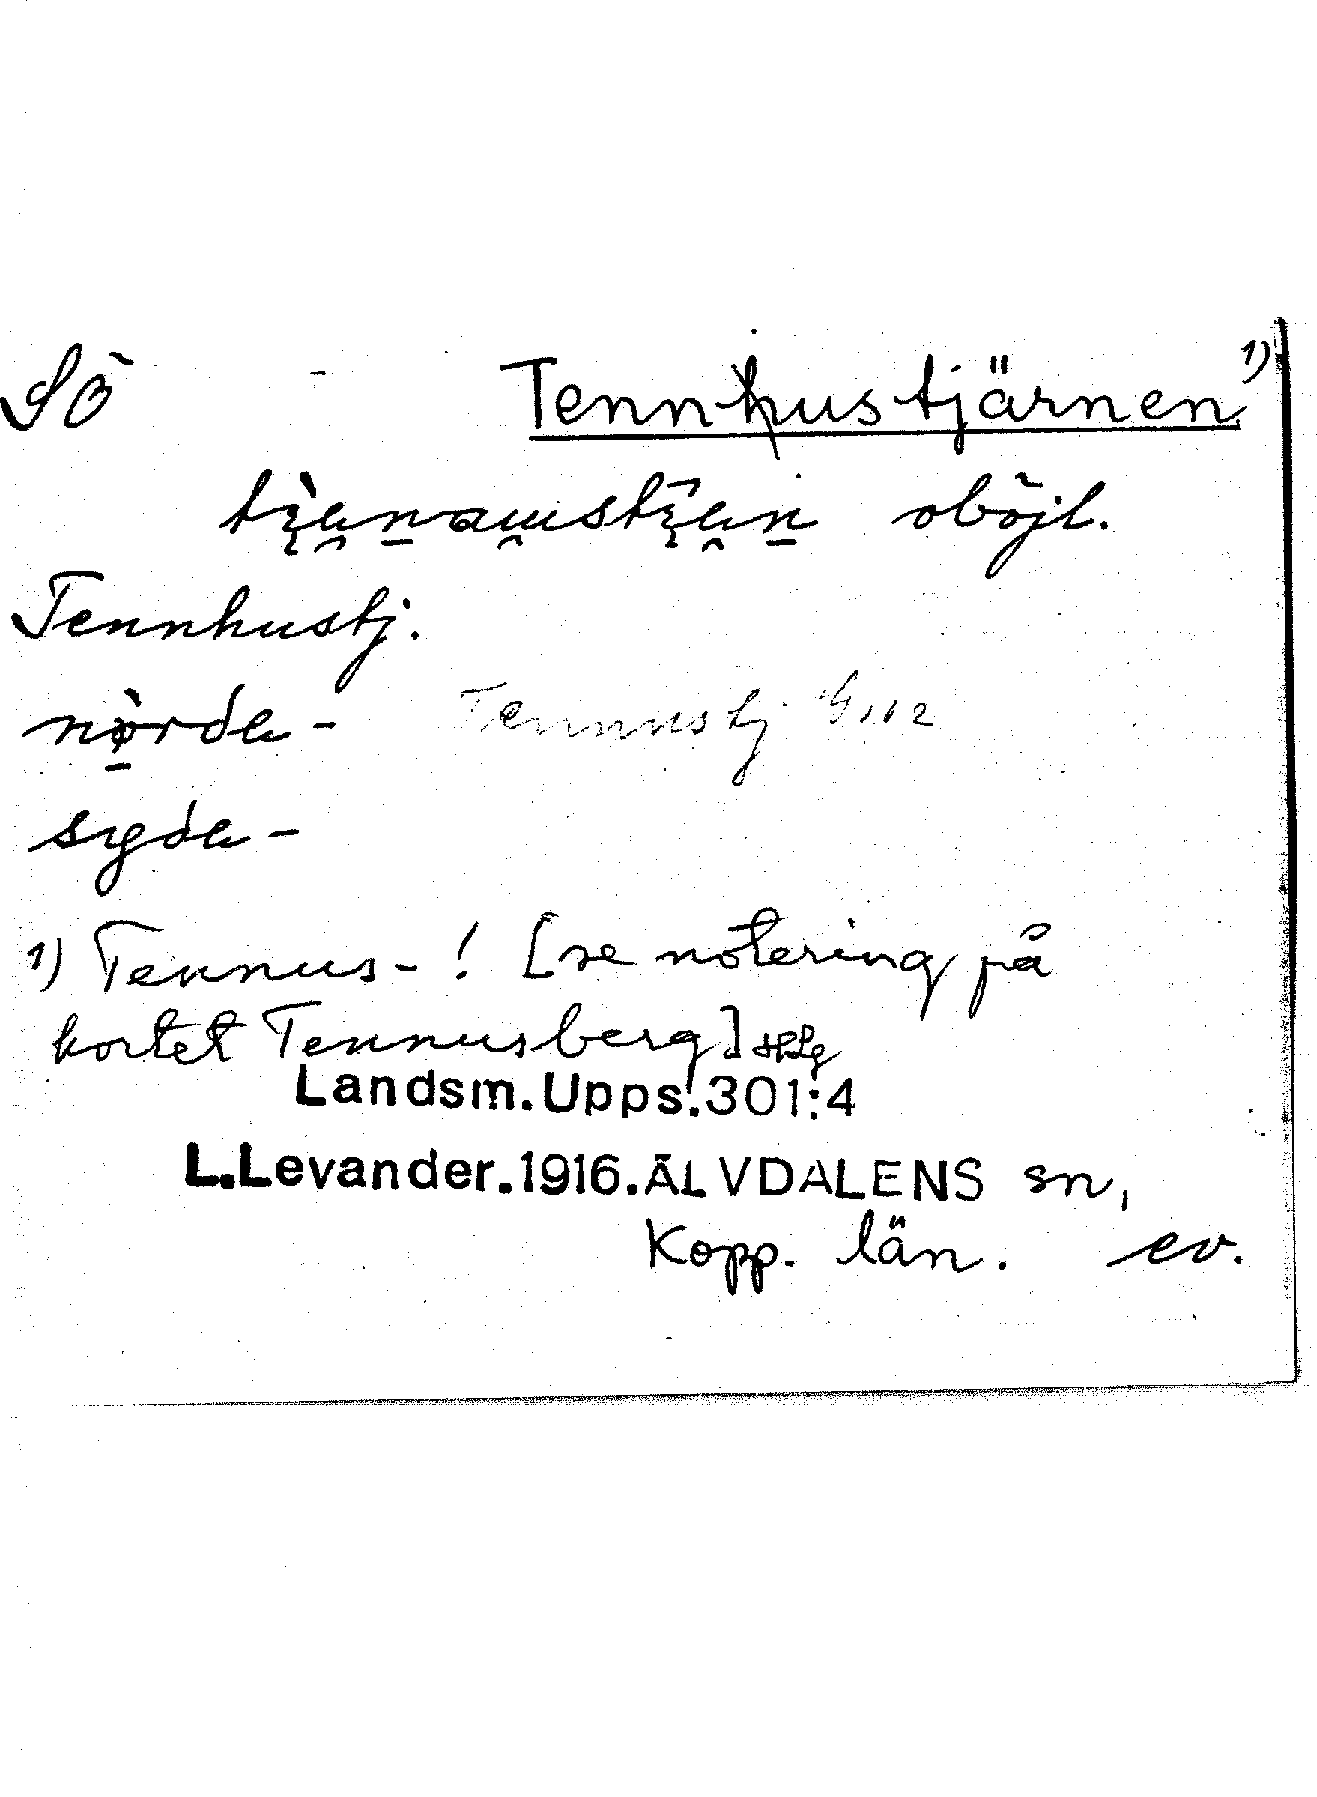 SÖ Tennhustjärnen 1)
oböjl.
Tennhustj.
nørda -
syda -
Tennustj
1) Tennus-! [se notering på
kortet Tennusberg]
Landsm. Upps. 301:4
L. Levander. 1916. ÄLVDALENS sn,
Kopp. län. ev.